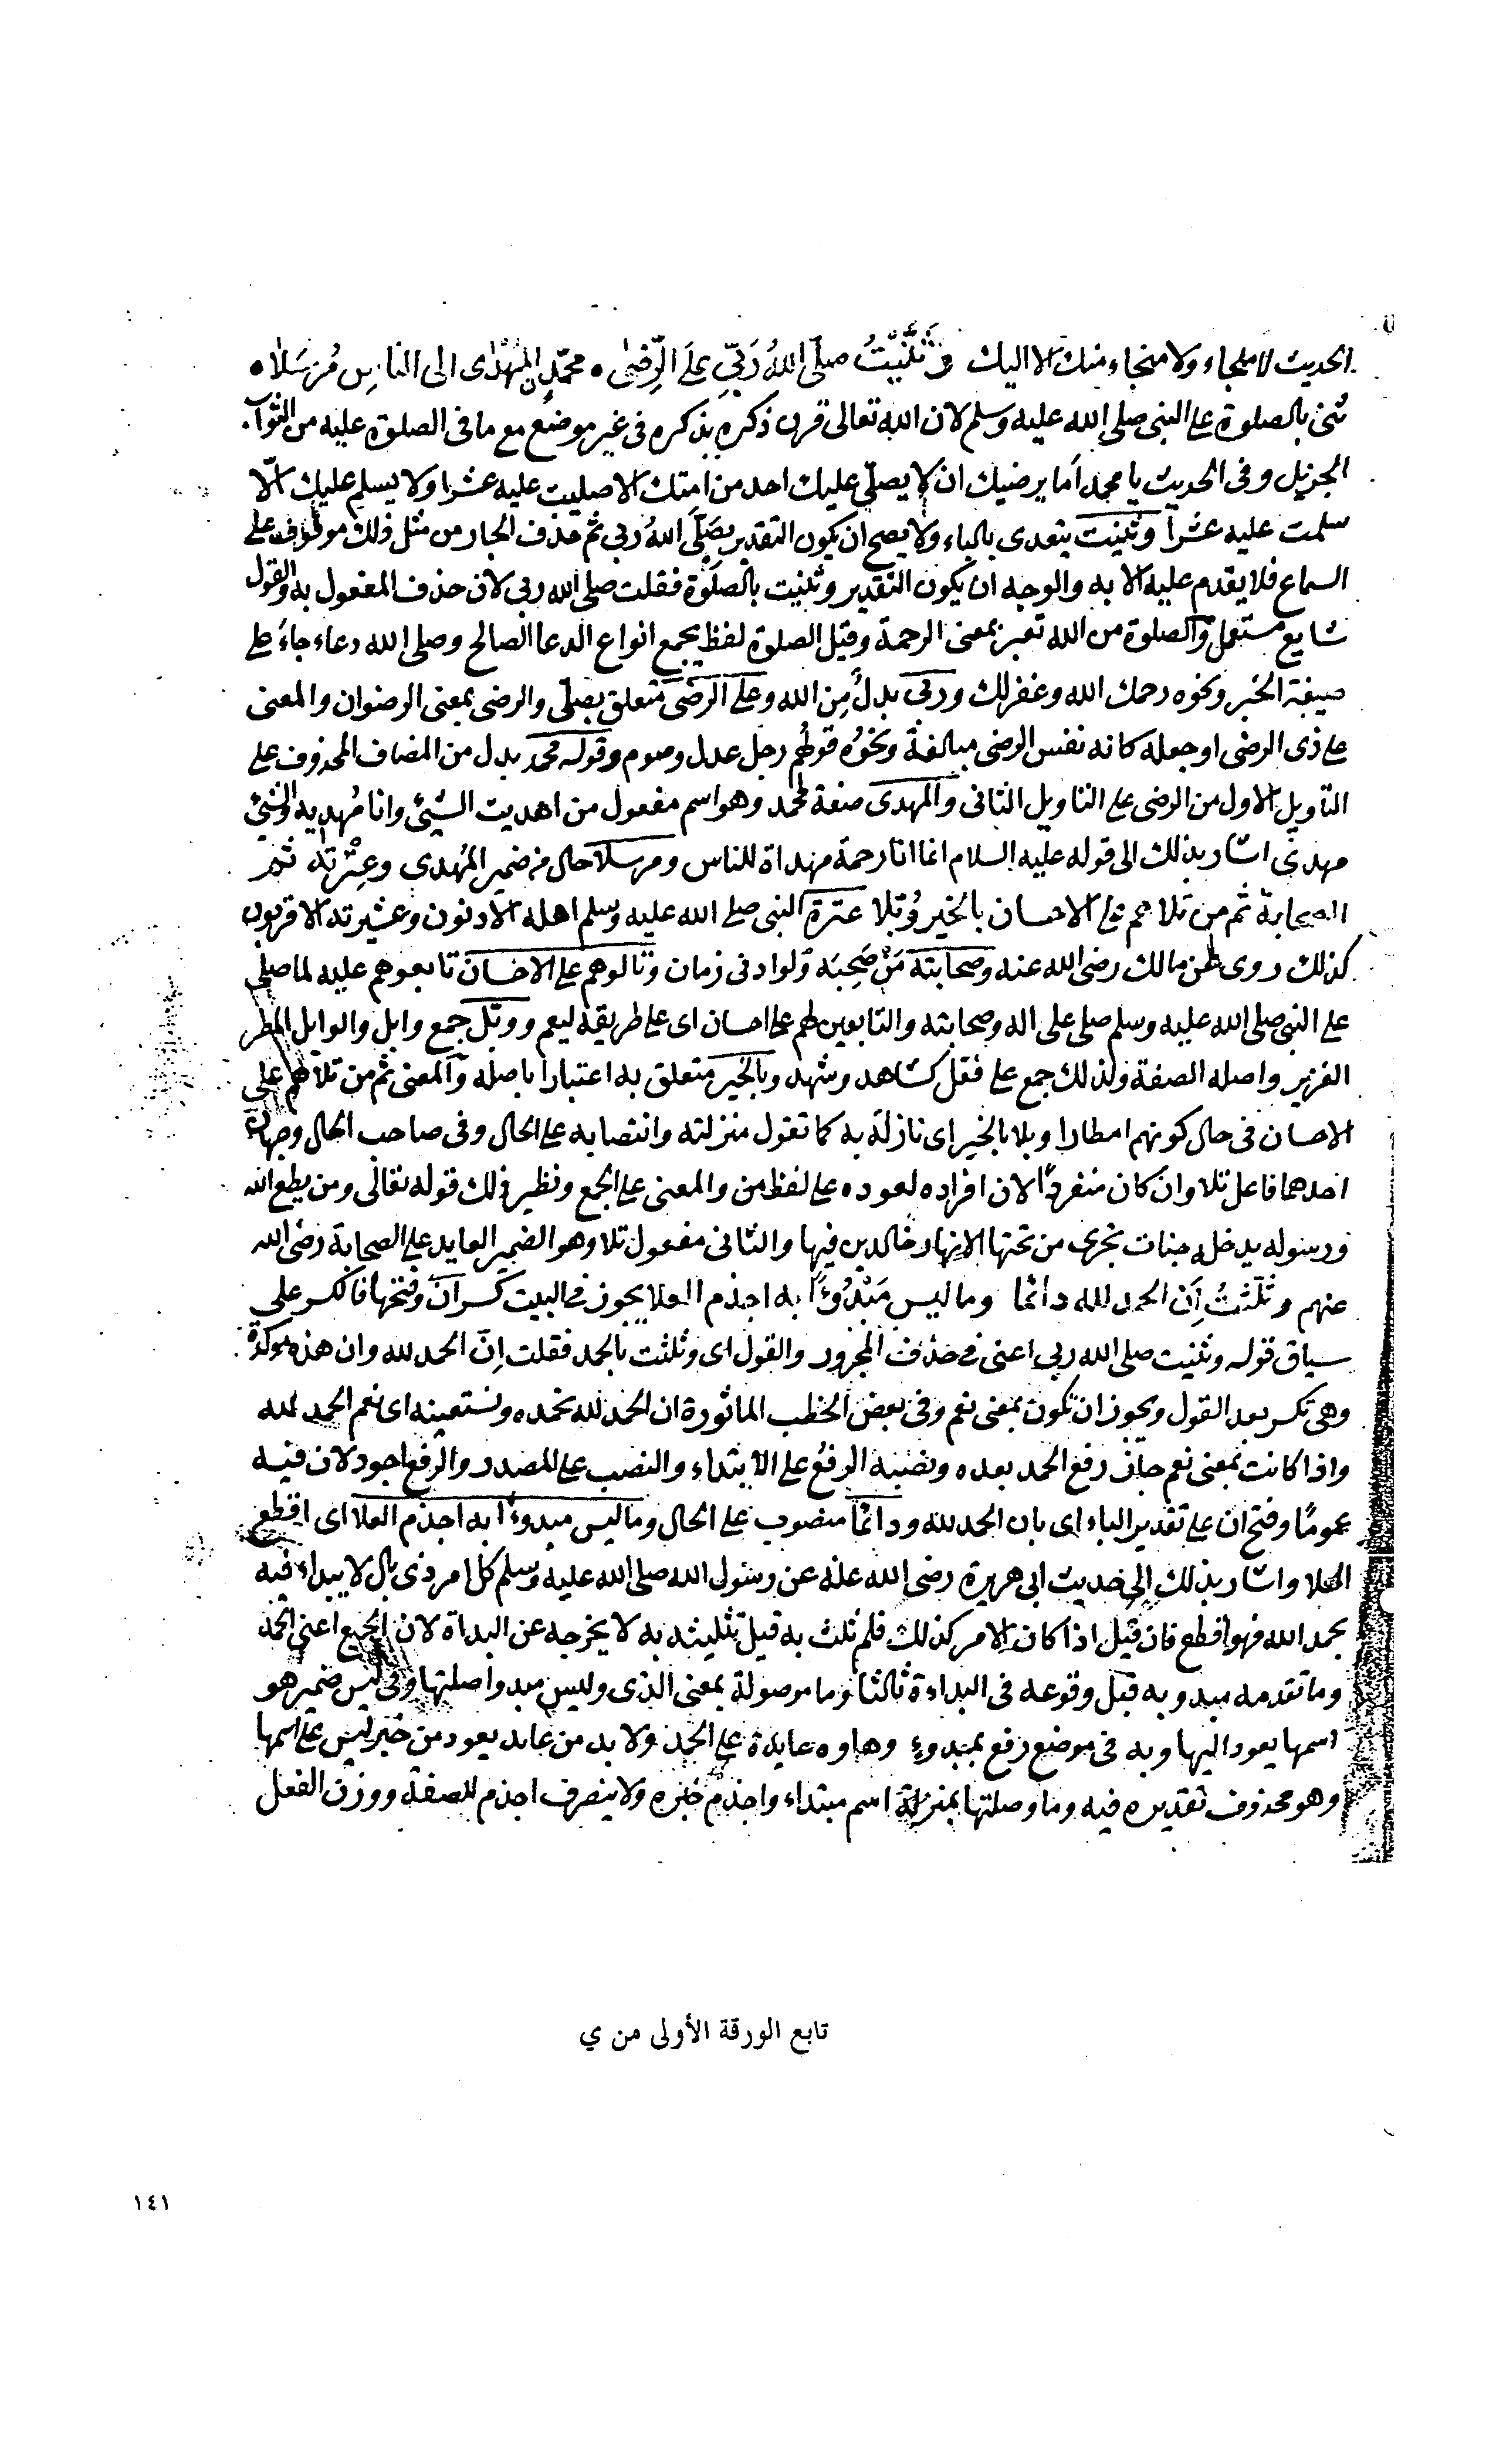 الحديث لا ملجاء ولا منجاء منك الا اليك وَثَنَّيْتُ صلّى اللهُ رَبّي على الرِّضى ٥ محمّدٍ المُهْدٰى الى الناسِ مُرْسَلَا ٥
ثنى بالصلوة على النبى صلى الله عليه وسلم لان الله تعالى قرن ذكره بذكره فى غير موضع مع ما فى الصلوة عليه من الثواب
الجزيل وفى الحديث يا محمد اما يرضيك ان لا يصلى عليك احد من امتك الا صليت عليه عشرا ولا يسلم عليك الّا
سلمت عليه عشرا وثنيت يتعدى بالباء ولا يصح ان يكون التقدير بصلى الله ربى ثم حذف الجار من مثل ذلك موقوف على
السماع فلا يقدم عليه الا به والوجه ان يكون التقدير وثنيت بالصلوة فقلت صلى الله ربى لان حذف المفعول به والقول
شايع مستعمل والصلوة من الله تعبر بمعنى الرحمة وقيل الصلوة لفظ يجمع انواع الدعا الصالح وصلى الله دعاء جاء على
صيغة الخبر ونحوه رحمك الله وغفر لك وربى بدل من الله وعلى الرضى متعلق بصلى والرضى بمعنى الرضوان والمعنى
على ذى الرضى او جعله كانه نفس الرضى مبالغة ونحوه قولهم رجل عدل وصوم وقوله محمد بدل من المضاف المحذوف على
التأويل الاول من الرضى على التاويل الثانى والمهدى صفة لمحمد وهو اسم مفعول من اهديت الشيئ وانا مُهديه والشيئ
مهدى اشار بذلك الى قوله عليه السلام انما انا رحمة مهداة للناس ومرسلا حال من ضمير المُهدى وعِتْرته ثم
الصحابة ثم من تلاهم على الاحسان بالخير وُبّلا عترة النبى صلى الله عليه وسلم اهله الادنون وعشيرته الاقربون
كذلك روى عن مالك رضى الله عنه وصحابته مَنْ صَحِبَه ولو ادنى زمان وتالوهم على الاحسان تابعوهم عليه لما صلى
على النبى صلى الله عليه وسلم صلى على اله وصحابته والتابعين لهم على احسان اى على طريقة ليعم ووبّل جمع وابل والوابل المطر
الغزير واصله الصفة ولذلك جمع على فعّل كشاهد وشهد وبالخير متعلق به اعتبارا باصله والمعنى ثم من تلاهم على
الاحسان فى حال كونهم امطارا وبلا بالخير اى نازلة به كما تقول منزلته وانتصابه على الحال وفى صاحب الحال وجهان
احدهما فاعل تلا وان كان منفردًا لان افراده لعوده على لفظ من والمعنى على الجمع ونظير ذلك قوله تعالى ومن يطع الله
ورسوله يدخله جنات تجرى من تحتها الانهار خالدين فيها والثانى مفعول تلا وهو الضمير العايد على الصحابة رضى الله
عنهم وثلّثتُ اَنِ الحمد لله دائما وما ليس مَبْدُوءًا به اجذم العلا يجوز فى البيت كسر انّ وفتحها فالكسر على
سياق قوله وثنيت صلى الله ربى اعنى فى حذف المجرور والقول اى وثلثت بالحمد فقلت إنّ الحمد لله وان هذه موكدة
وهى تكسر بعد القول ويجوز ان تكون بمعنى نعم وفى بعض الخطب الماثورة ان الحمد لله نحمده ونستعينه اى نعم الحمد لله
واذا كانت بمعنى نعم جاز رفع الحمد بعده ونصبه الرفعُ على الابتداء والنصب على المصدر والرفع اجود لان فيه
عمومًا وفتح ان على تقدير الباء اى بان الحمد لله ودائما منصوب على الحال وما ليس مبدوءا به اجذم العلا اى اقطع
العلا واشار بذلك الى حديث ابى هريرة رضى الله عنه عن رسول الله صلى الله عليه وسلم كل امر ذى بال لا يبداء فيه
بحمد الله فهو اقطع فان قيل اذا كان الامر كذلك فلم ثلث به قيل تثليثه به لا يخرجه عن البداة لان الجميع اعنى الحمد
وما تقدمه مبدو به قبل وقوعه فى البداءة ثالثا وما موصولة بمعنى الذى وليس مبدوا صلتها وفى ليس ضمير هو
اسمها يعود اليها وبه فى موضع رفع بمبدوء وهاوه عايدة على الحمد ولا بد من عايد يعود من خبر ليس على اسمها
وهو محذوف تقديره فيه وما وصلتها بمنزلة اسم مبتداء واجذم خبره ولا ينصرف اجذم للصفة ووزن الفعل
تابع الورقة الأولى من ي
١٤١